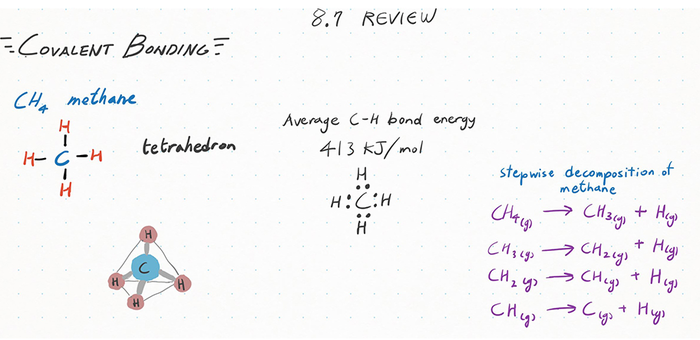 8.7 REVIEW
COVALENT BONDING
CH₄ methane
H
H-C-H
H
tetrahedron
H
C
H
H
H
Average C-H bond energy
413 KJ/mol
H
H:C:H
H
stepwise decomposition of
methane
CH₄(g) → CH₃(g) + H(g)
CH₃(g) → CH₂(g) + H(g)
CH₂(g) → CH(g) + H(g)
CH(g) → C(g) + H(g)